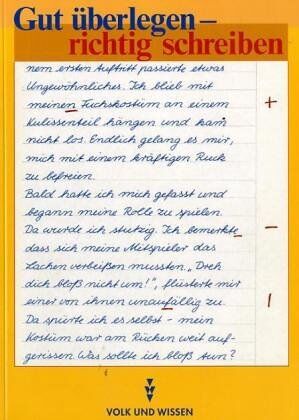 Gut überlegen –
richtig schreiben
nem ersten Auftritt passierte etwas
Ungewöhnliches. Ich blieb mit
meinen Fuchskostüm an einem
Kulissenteil hängen und kam
nicht los. Endlich gelang es mir,
mich mit einem kräftigen Ruck
zu befreien.
Bald hatte ich mich gefasst und
begann meine Rolle zu spielen.
Da wurde ich stutzig. Ich bemerkte
dass sich meine Mitspieler das
Lachen verbeißen mussten. „Dreh
dich bloß nicht um!", flüsterte mir
einer von ihnen unaufällig zu.
Da spürte ich es selbst – mein
Kostüm war am Rücken weit auf-
gerissen Was sollte ich bloß tun?
VOLK UND WISSEN